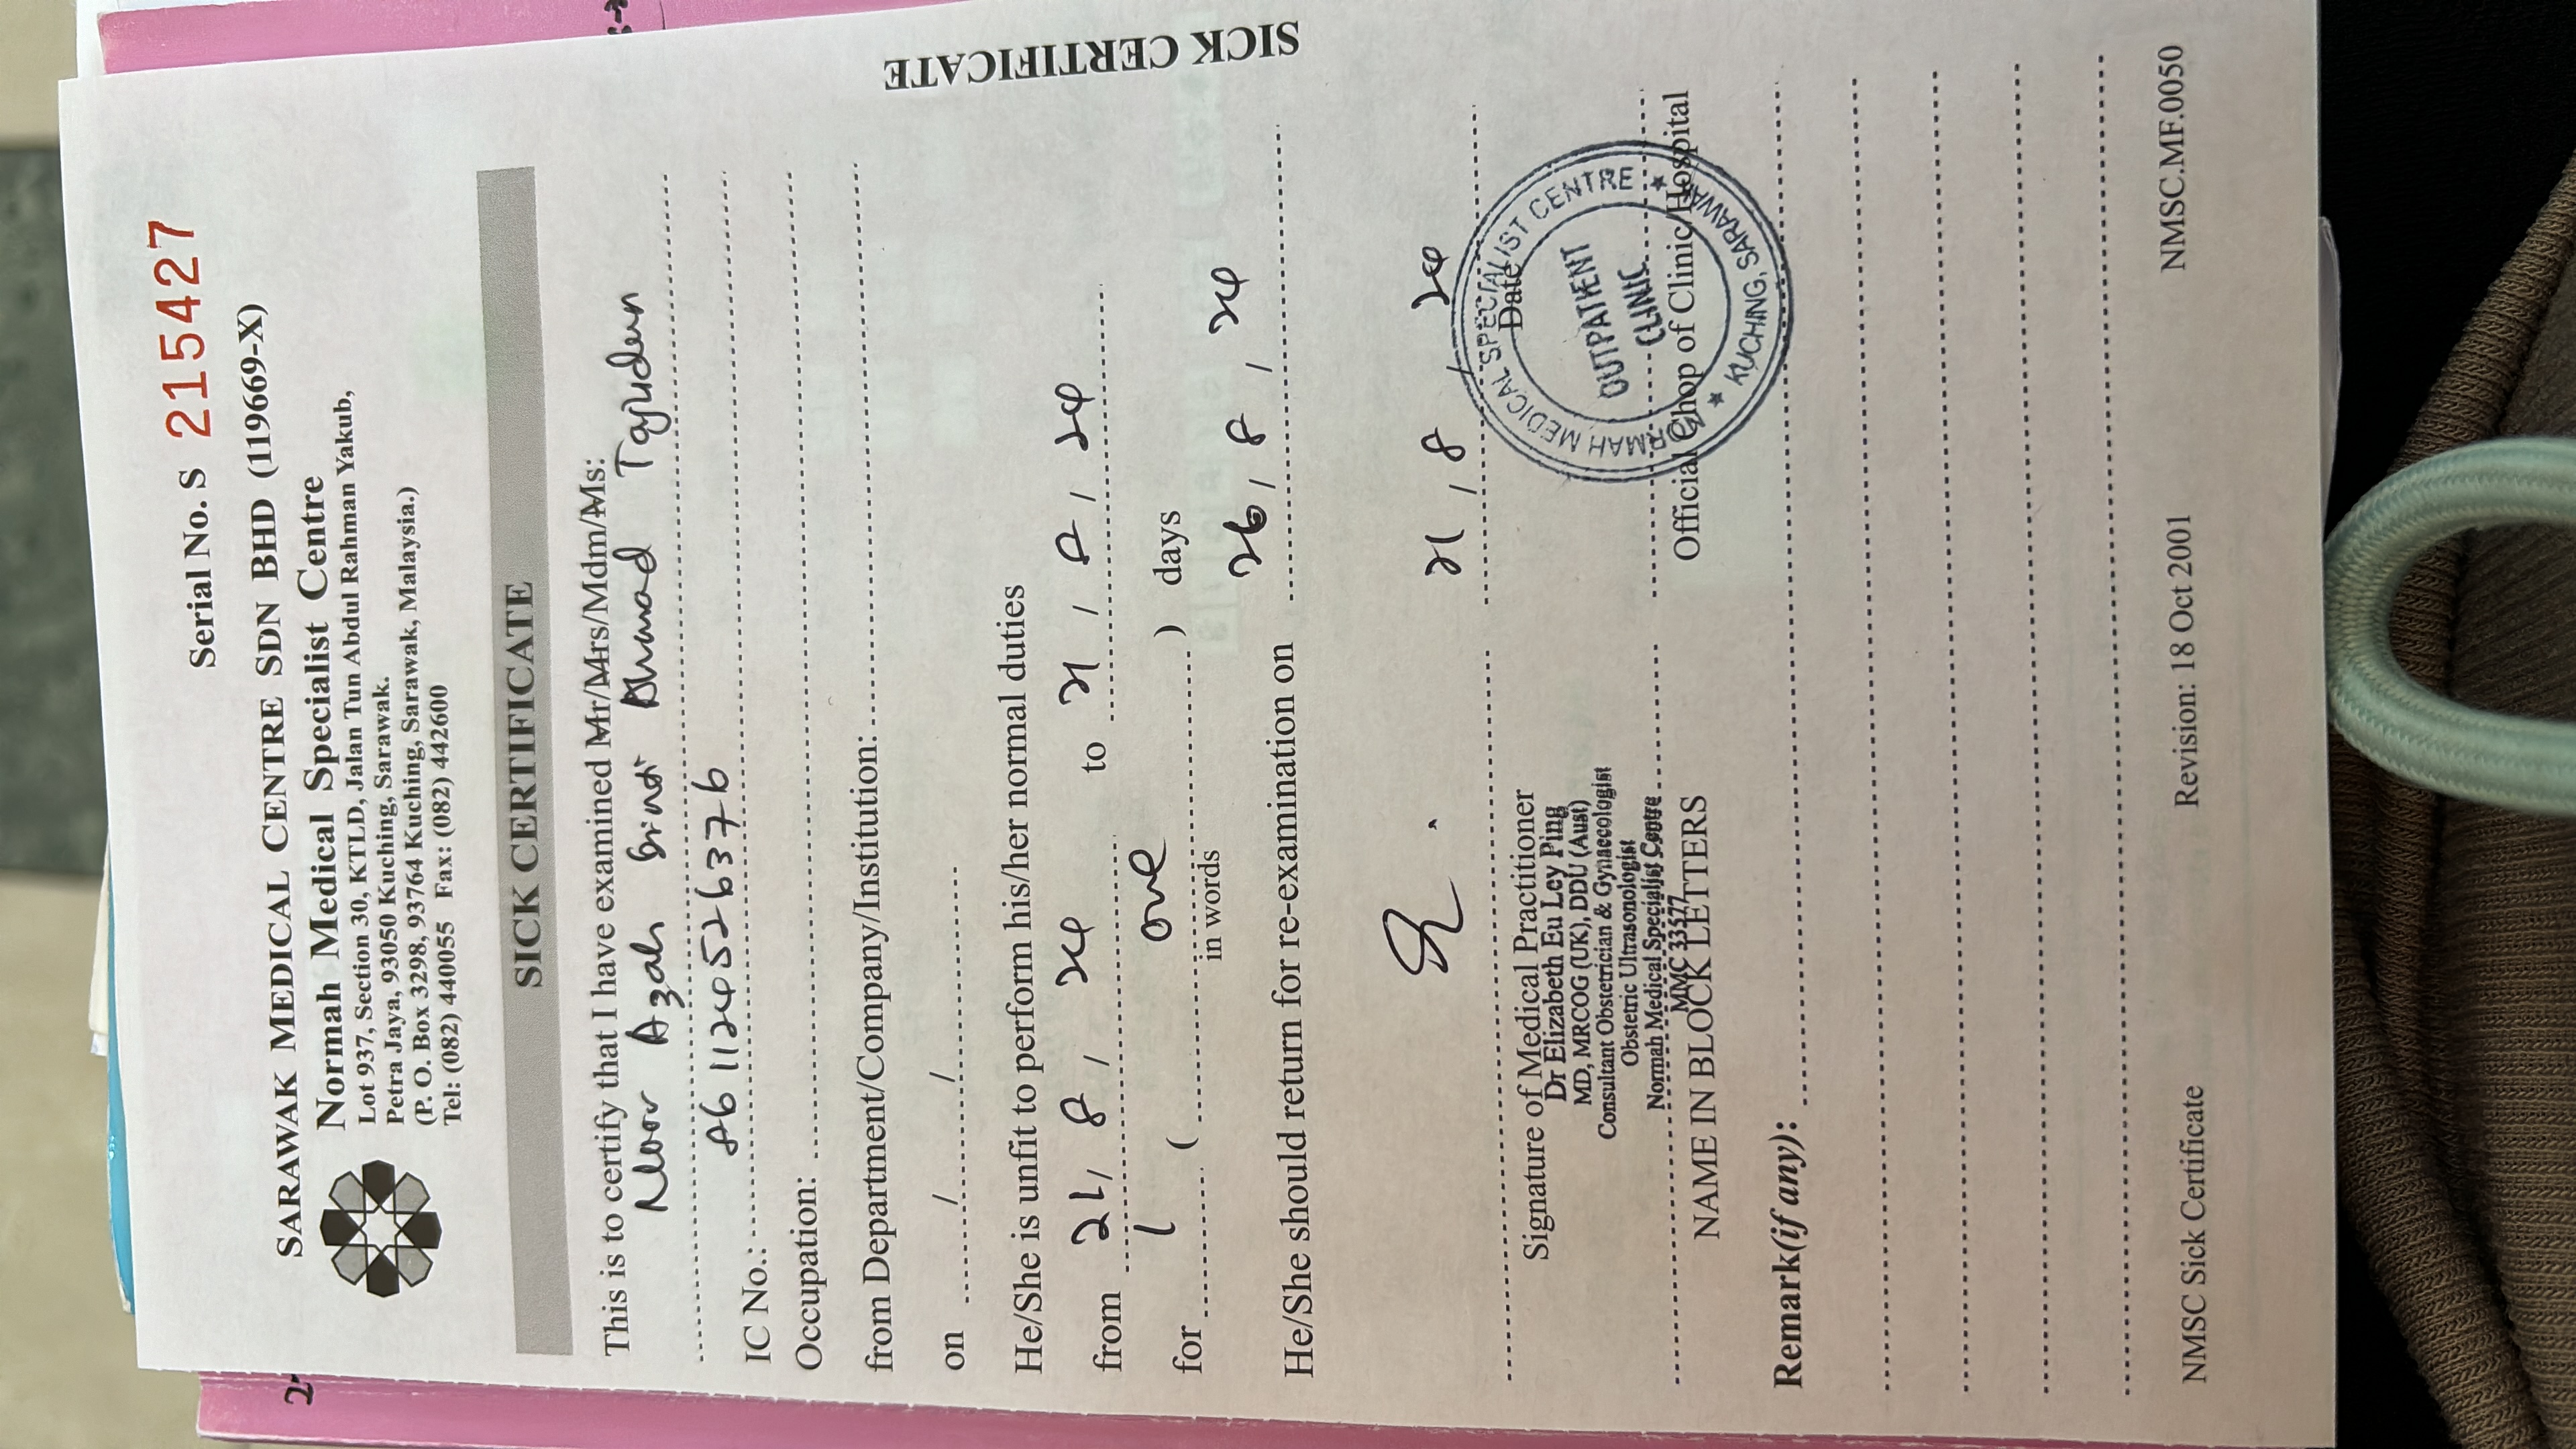 Serial No. S 215427
SARAWAK MEDICAL CENTRE SDN BHD (119669-X)
Normah Medical Specialist Centre
Lot 937, Section 30, KTLD, Jalan Tun Abdul Rahman Yakub,
Petra Jaya, 93050 Kuching, Sarawak.
(P. O. Box 3298, 93764 Kuching, Sarawak, Malaysia.)
Tel: (082) 440055 Fax: (082) 442600
SICK CERTIFICATE
This is to certify that I have examined Mr/Mrs/Mdm/Ms:
Noor Azah binti Ahmad Tajuden
IC No.: 861124526376
Occupation:
from Department/Company/Institution:
on / /
He/She is unfit to perform his/her normal duties
from 21, 8, 24 to 21, 8, 24
for 1 ( one ) days
in words
He/She should return for re-examination on 26, 8, 24
21, 8, 24
Signature of Medical Practitioner
Date
Dr Elizabeth Eu Ley Ping
MD, MRCOG (UK), DDU (Aust)
Consultant Obstetrician & Gynaecologist
Obstetric Ultrasonologist
Normah Medical Specialist Centre
MMC 33577
NAME IN BLOCK LETTERS
NORMAH MEDICAL SPECIALIST CENTRE
OUTPATIENT
CLINIC
★ KUCHING, SARAWAK ★
Official Chop of Clinic/Hospital
Remark(if any):
NMSC Sick Certificate Revision: 18 Oct 2001 NMSC.MF.0050
SICK CERTIFICATE